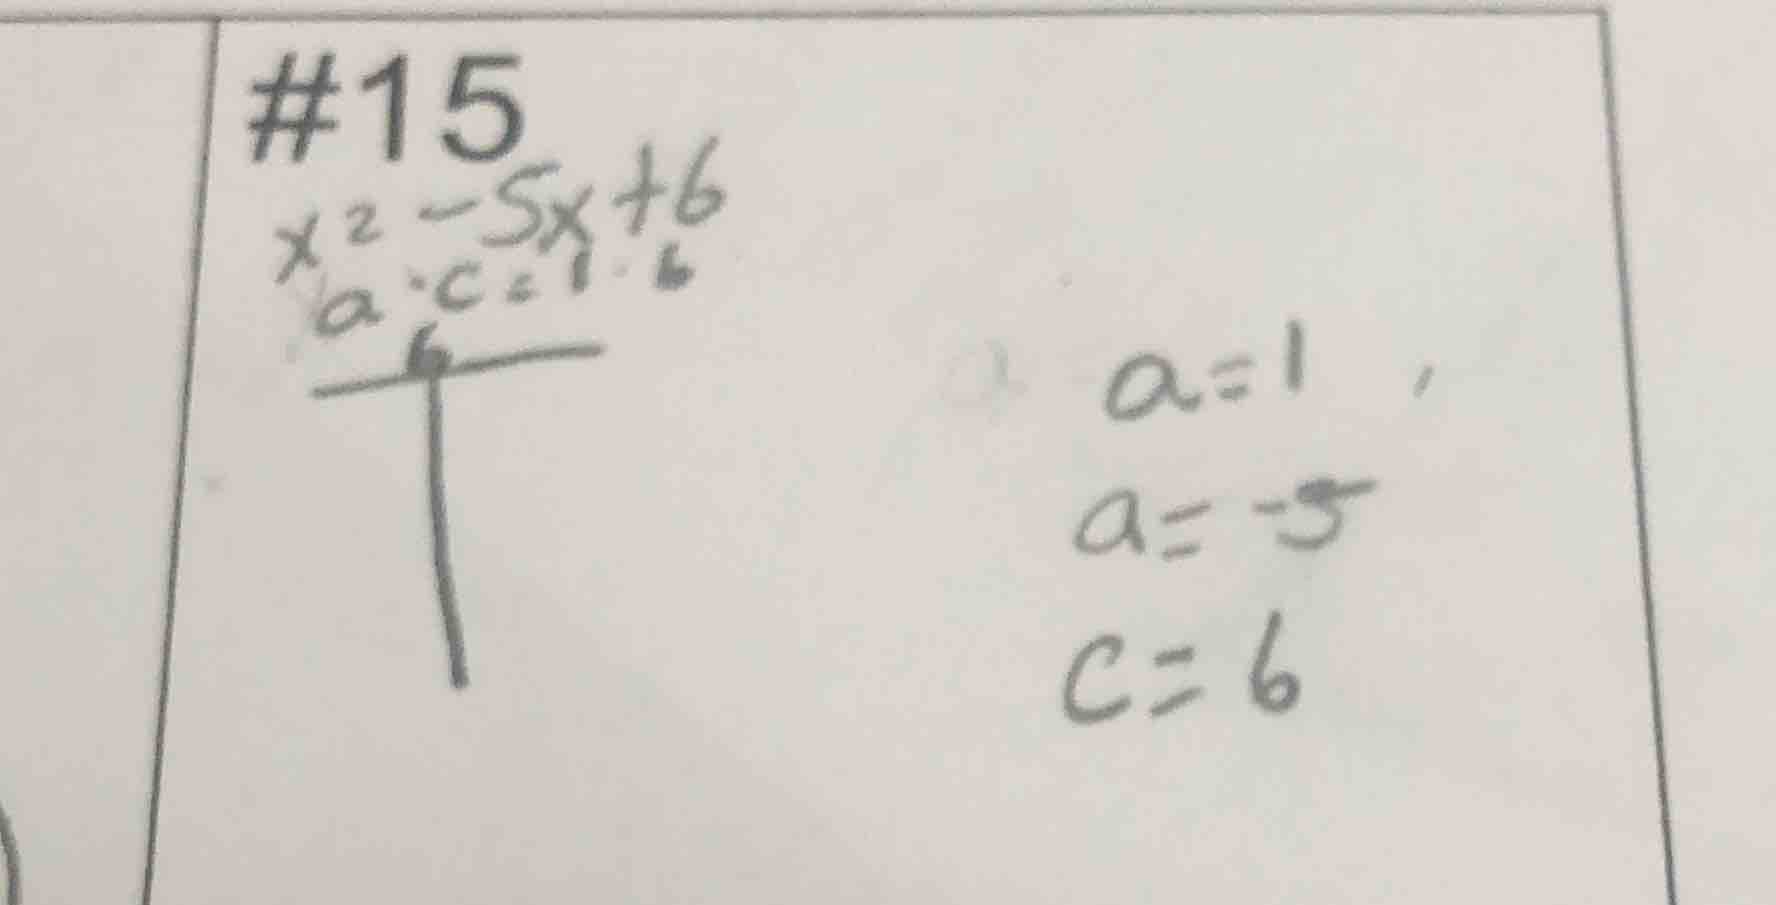 #15
x² -5x+6
a·c=1·6
6
a=1
a=-5
c=6